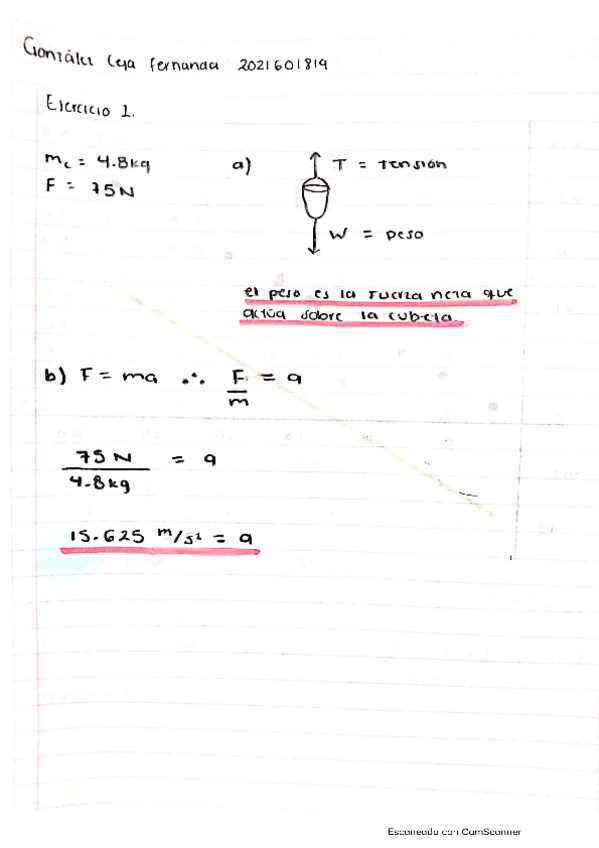 González Ceja Fernanda 2021601819
Ejercicio 1.
mc = 4.8kg
F = 75N
a)
T = tensión
W = peso
el peso es la fuerza neta que
actúa sobre la cubeta.
b) F = ma ∴ F/m = a
75 N / 4.8kg = a
15.625 m/s² = a
Escaneado con CamScanner